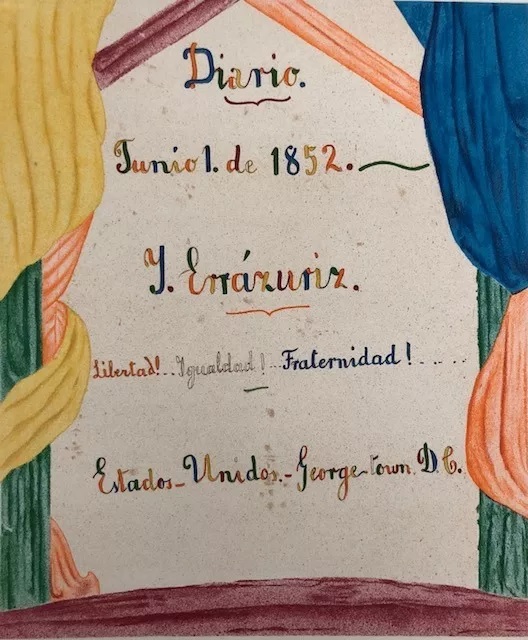 Diario.
Junio 1. de 1852.
Y. Errázuriz.
Libertad!...Igualdad!...Fraternidad!.....
Estados-Unidos.-George-town. D. C.